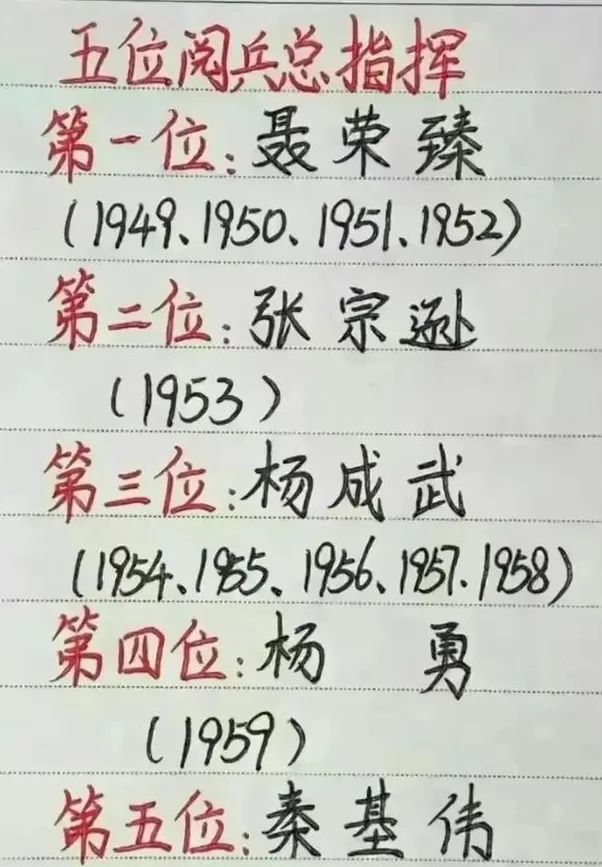 五位阅兵总指挥
第一位:聂荣臻
(1949、1950、1951、1952)
第二位:张宗逊
(1953)
第三位:杨成武
(1954、1955、1956、1957、1958)
第四位:杨 勇
(1959)
第五位:秦基伟